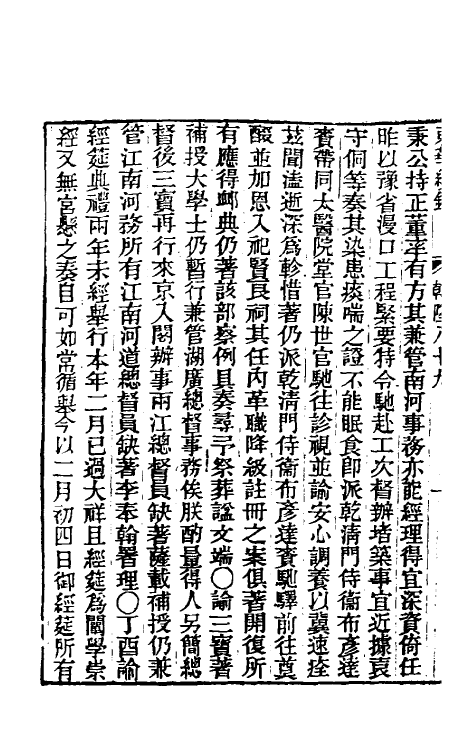 秉公持正董率有方其兼管南河事務亦能經理得宜深資倚任
昨以豫省漫口工程緊要特令馳赴工次督辦堵築事宜近據袁
守侗等奏其染患痰喘之證不能眠食即派乾淸門侍衞布彥達
賚帶同太醫院堂官陳世官馳往診視並諭安心調養以冀速痊
茲聞溘逝深爲軫惜著仍派乾淸門侍衞布彥達賚馳驛前往奠
醊並加恩入祀賢良祠其任內革職降級註冊之案俱著開復所
有應得䘏典仍著該部察例具奏尋予祭葬諡文端〇諭三寶著
補授大學士仍暫行兼管湖廣總督事務俟朕酌量得人另簡總
督後三寶再行來京入閣辦事兩江總督員缺著薩載補授仍兼
管江南河務所有江南河道總督員缺著李奉翰署理〇丁酉諭
經筵典禮兩年未經舉行本年二月已過大祥且經筵爲闡學崇
經又無宮懸之奏自可如常循舉今以二月初四日御經筵所有